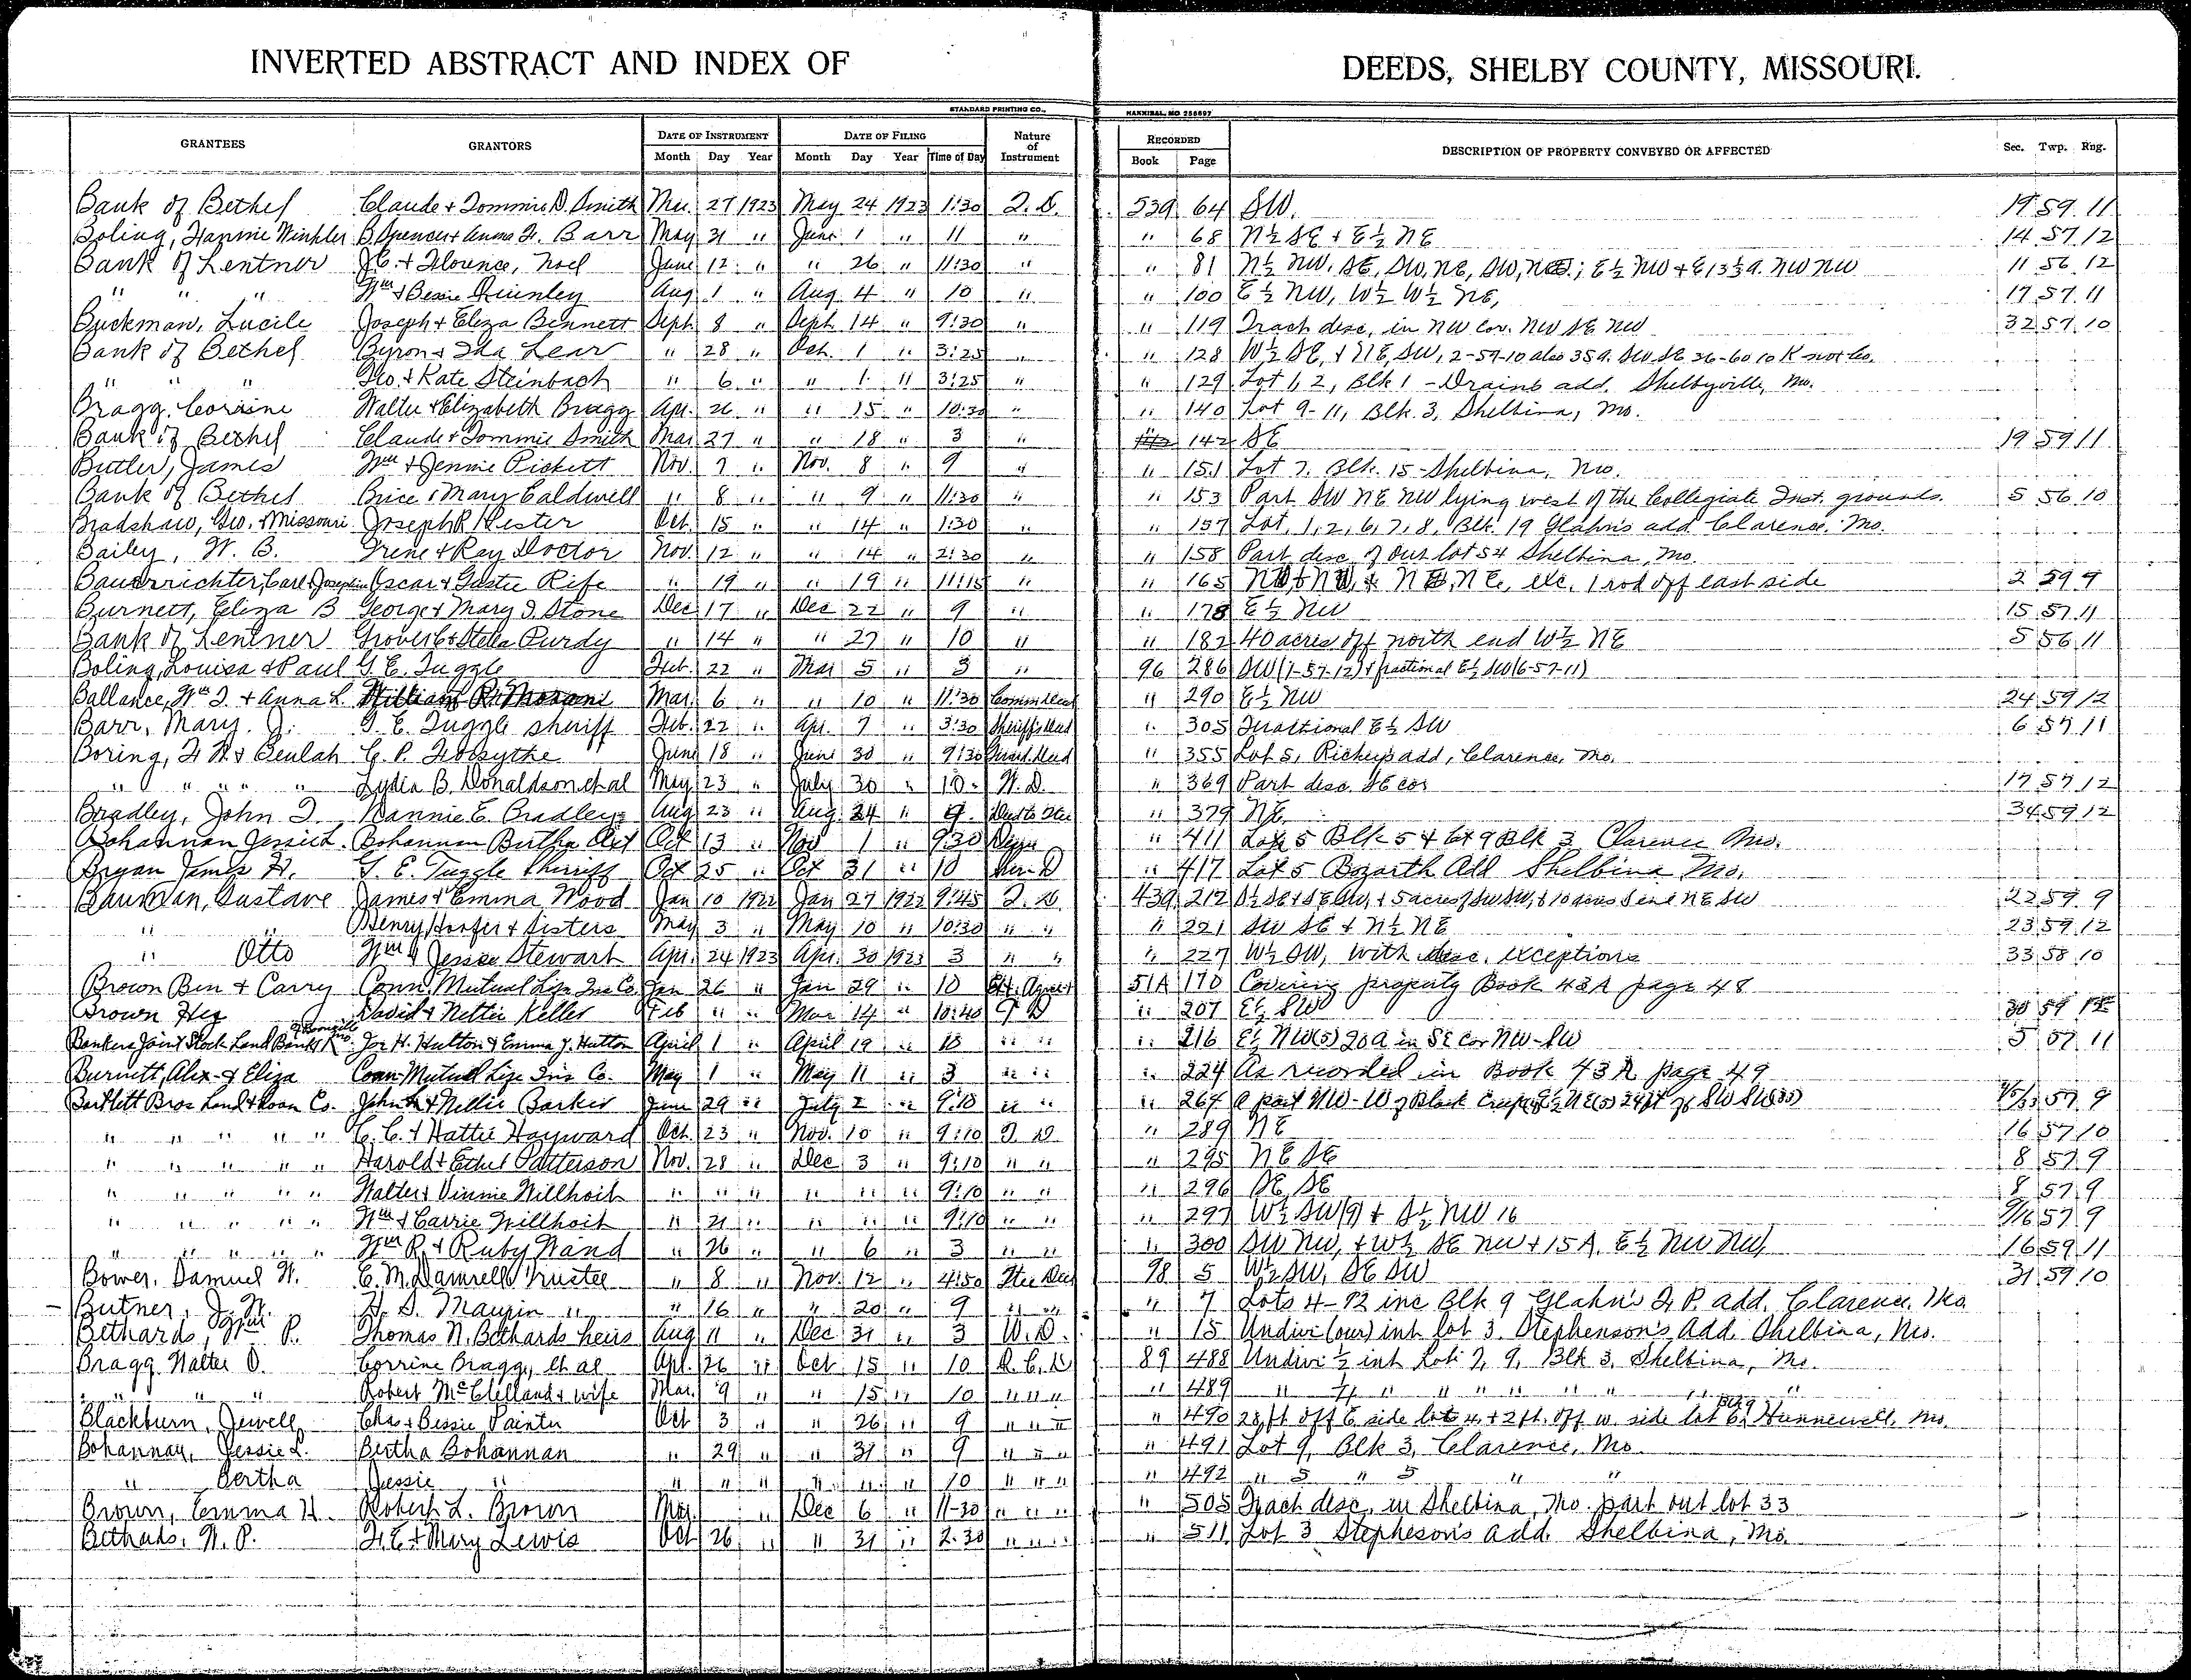 INVERTED ABSTRACT AND INDEX OF DEEDS, SHELBY COUNTY, MISSOURI.
STANDARD PRINTING CO., HANNIBAL, MO 256697
GRANTEES GRANTORS DATE OF INSTRUMENT DATE OF FILING Nature of Instrument RECORDED DESCRIPTION OF PROPERTY CONVEYED OR AFFECTED Sec. Twp. Rng.
Month Day Year Month Day Year Time of Day Book Page
Bank of Bethel Claude & Tommie D. Smith Mar. 27 1923 May 24 1923 1:30 T. D. 539 64 SW. 19 59 11
Boling, Fannie Winkler B. Spencer & Anna H. Barr May 31 " June 1 " 11 " " 68 N½ SE & E½ NE 14 57 12
Bank of Lentner J.C. & Florence, Noel June 12 " " 26 " 11:30 " " 81 N½ NW, SE, SW, NE, SW, ; E½ NW & E 13⅓ a. NW NW 11 56 12
" " " Wm & Bessie Quinley Aug 1 " Aug 4 " 10 " " 100 E½ NW, W½ W½ NE, 17 57 11
Buckman, Lucile Joseph & Eliza Bennett Sept 8 " Sept 14 " 9:30 " " 119 Tract desc, in NW cor. NW SE NW 32 57 10
Bank of Bethel Byron & Ida Lear " 28 " Oct. 1 " 3:25 " " 128 W½ SE, & NE, SW, 2-59-10 also 35 a. SW SE 36-60 10 Knox Co.
" " " Geo. & Kate Steinbach " 6 " " 1 " 3:25 " " 129 Lot 1, 2, Blk 1 - Drains add. Shelbyville, Mo.
Bragg, Corrine Walter & Elizabeth Bragg Apr. 26 " " 15 " 10:30 " " 140 Lot 9-11, Blk. 3, Shelbina, Mo.
Bank of Bethel Claude & Tommie Smith Mar 27 " " 18 " 3 " 142 SE 19 59 11
Butler, James Wm & Jennie Pickett Nov. 7 " Nov. 8 " 9 " " 151 Lot 7. Blk. 15 - Shelbina, Mo.
Bank of Bethel Brice & Mary Caldwell " 8 " " 9 " 11:30 " " 153 Part SW NE NW lying west of the Collegiate Inst. grounds. 5 56 10
Bradshaw, Geo. & Missouri Joseph R. Hester Oct. 15 " " 14 " 1:30 " " 157 Lot, 1, 2, 6, 7, 8, Blk. 19 Glahn's add Clarence, Mo.
Bailey, W. B. Irene & Ray Doctor Nov. 12 " " 14 " 2:30 " " 158 Part desc of out lot 54 Shelbina, Mo.
Bauerrichter, Carl & Josephine Oscar & Gustie Rife " 19 " " 19 " 11:15 " " 165 NE, exc. 1 rod off east side 2 59 9
Burnett, Eliza B George & Mary J. Stone Dec 17 " Dec 22 " 9 " " 178 E½ NW 15 57 11
Bank of Lentner Grover C. & Stella Purdy " 14 " " 27 " 10 " " 182 40 acres off north end W½ NE 5 56 11
Boling, Louisa & Paul G. E. Tuggle Feb. 22 " Mar 5 " 3 " 96 286 SW (1-57-12) & fractional E½ SW (6-57-11)
Ballance, Wm T. & Anna L. William Mar. 6 " " 10 " 11:30 Comm Deed " 290 E½ NW 24 59 12
Barr, Mary. J. G. E. Tuggle sheriff Feb. 22 " Apr. 7 " 3:30 Sheriff's Deed " 305 Fractional E½ SW 6 57 11
Boring, F. W. & Beulah C. P. Forsythe June 18 " June 30 " 9:30 Guard. Deed " 355 Lot 5, Rickey's add, Clarence, Mo.
" " " " Lydia B. Donaldson et al May 23 " July 30 " 10 W. D. " 369 Part desc. SE cor 17 57 12
Bradley, John T. Nannie E. Bradley Aug 23 " Aug 24 " 9 " 379 NE. 34 59 12
Bohannan Jessie L. Bohannan Bertha Oct 13 " Nov 1 " 9:30 " 411 Lot 5 Blk 5 & Lot 9 Blk 3 Clarence Mo.
Bryan James H. G. E. Tuggle Sheriff Oct 25 " Oct 31 " 10 " 417 Lot 5 Bozarth Add Shelbina Mo.
Bauman, Gustave James & Emma Wood Jan 10 1922 Jan 27 1922 9:45 T. D. 439 212 S½ SE & SE SW, & 5 acres of SW SW, & 10 acres S end NE SW 22 59 9
" " Henry Hoofer & Sisters May 3 " May 10 " 10:30 " " " 221 SW SE & N½ NE 23 59 12
" Otto Wm & Jessie Stewart Apr. 24 1923 Apr. 30 1923 3 " " " 227 W½ SW, with desc. exceptions 33 58 10
Brown Ben & Carry Conn. Mutual Life Ins Co. Jan 26 " Jan 29 " 10 Ext. Agreemt 51A 170 Covering property Book 43A page 48
Brown Hez David & Nettie Keller Feb " " Mar 14 " 10:40 T D " 207 E½ SW 30 59
Bankers Joint Stock Land Bank of Joe H. Hutton & Emma J. Hutton April 1 " April 19 " 10 " " " 216 E½ NW (5) 20 a in SE cor NW-SW 5 57 11
Burnett, Alex & Eliza Conn Mutual Life Ins Co. May 1 " May 11 " 3 " " " 224 As recorded in Book 43A page 49
Bartlett Bros Land & Loan Co. John & Nellie Barker June 29 " July 2 " 9:10 " " " 264 A part NW-W of Black Creek 57 9
" " " " " C. C. & Hattie Hayward Oct. 23 " Nov. 10 " 9:10 T. D. " 289 NE 16 57 10
" " " " " Harold & Ethel Patterson Nov. 28 " Dec 3 " 9:10 " " " 295 NE SE 8 57 9
" " " " " Walter & Vinnie Willhoit " " " " " " 9:10 " " " 296 SE, SE 8 57 9
" " " " " Wm & Carrie Willhoit " 21 " " " " 9:10 " " " 297 W½ SW (9) & S½ NW 16 9/16 57 9
" " " " " Wm R. & Ruby Wand " 26 " " 6 " 3 " " " 300 SW NW, & W½ SE NW & 15 A. E½ NW NW 16 59 11
Bower, Samuel W. E. M. Damrell Trustee " 8 " Nov. 12 " 4:50 98 5 W½ SW, SE SW 31 59 10
Butner, J. W. H. S. Maupin " " 16 " " 20 " 9 " " " 7 Lots 4-12 inc Blk 9 Glahn's I. P. add. Clarence, Mo
Bethards, Wm P. Thomas N. Bethards heirs Aug 11 " Dec 31 " 3 W. D. " 15 Undivi (our) int lot 3. Stephenson's Add. Shelbina, Mo.
Bragg Walter O. Corrine Bragg, et al Apr. 26 " Oct 15 " 10 Q. C. D 89 488 Undivi ½ int Lots 7, 9, Blk 3, Shelbina, Mo.
" " " Robert McClelland & wife Mar. 9 " " 15 " 10 " " " " 489 " " " " " " " " " "
Blackburn, Jewell Chas & Bessie Painter Oct 3 " " 26 " 9 " " " " 490 28 ft off E side lot 4, & 2 ft. off w. side lot 6, Blk 9 Hunnewell, Mo.
Bohannan, Jessie L. Bertha Bohannan " 29 " " 31 " 9 " " " " 491 Lot 9, Blk 3, Clarence, Mo
" Bertha Jessie " " " " " " " 10 " " " " 492 " 5 " 5 " "
Brown, Emma H. Robert L. Brown May " Dec 6 " 11-30 " " " " 505 Tract desc, in Shelbina, Mo. part out lot 33
Bethads, W. P. F. E. & Mary Lewis Oct 26 " " 31 " 2:30 " " " " 511 Lot 3 Stepheson's add. Shelbina, Mo.